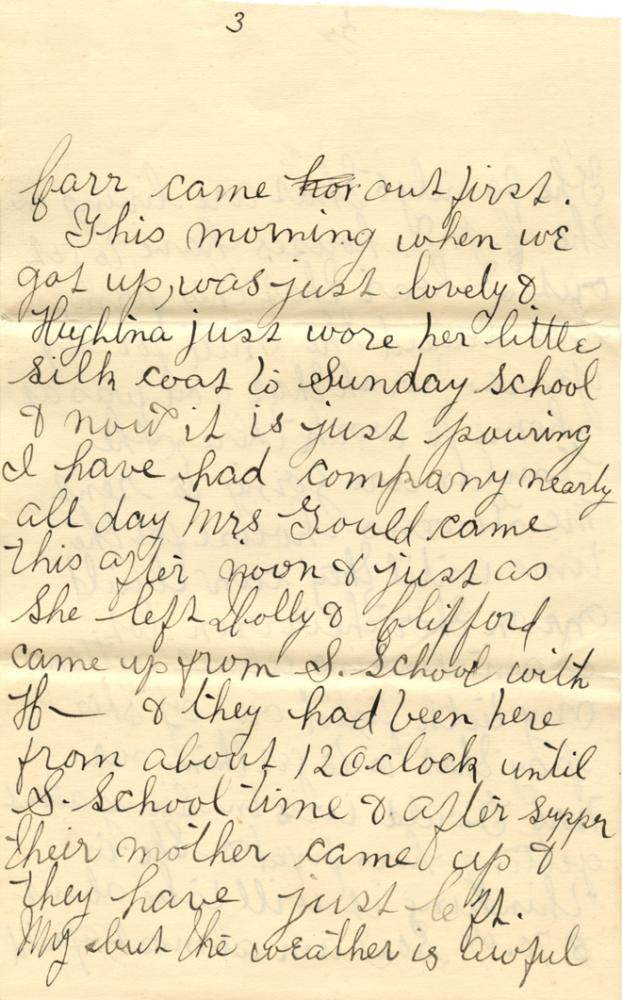 3
Carr came hor out first.
This morning when we
got up, was just lovely &
Hughina just wore her little
silk coat to Sunday School
& now it is just pouring
I have had company nearly
all day Mrs Gould came
this after noon & just as
she left Dolly & Clifford
came up from S. School with
H— & they had been here
from about 12 Oclock until
S. School time & after supper
their mother came up &
they have just left.
My but the weather is awful